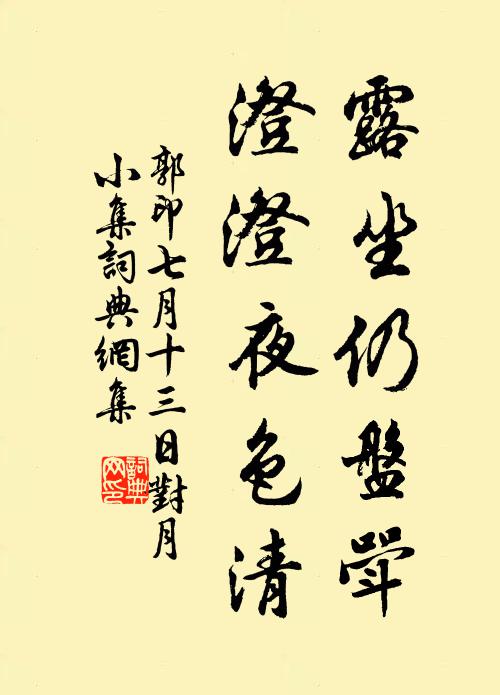 露坐仍盤斝
澄澄夜色清
郭印七月十三日對月
小集詞典網集
詞典网印